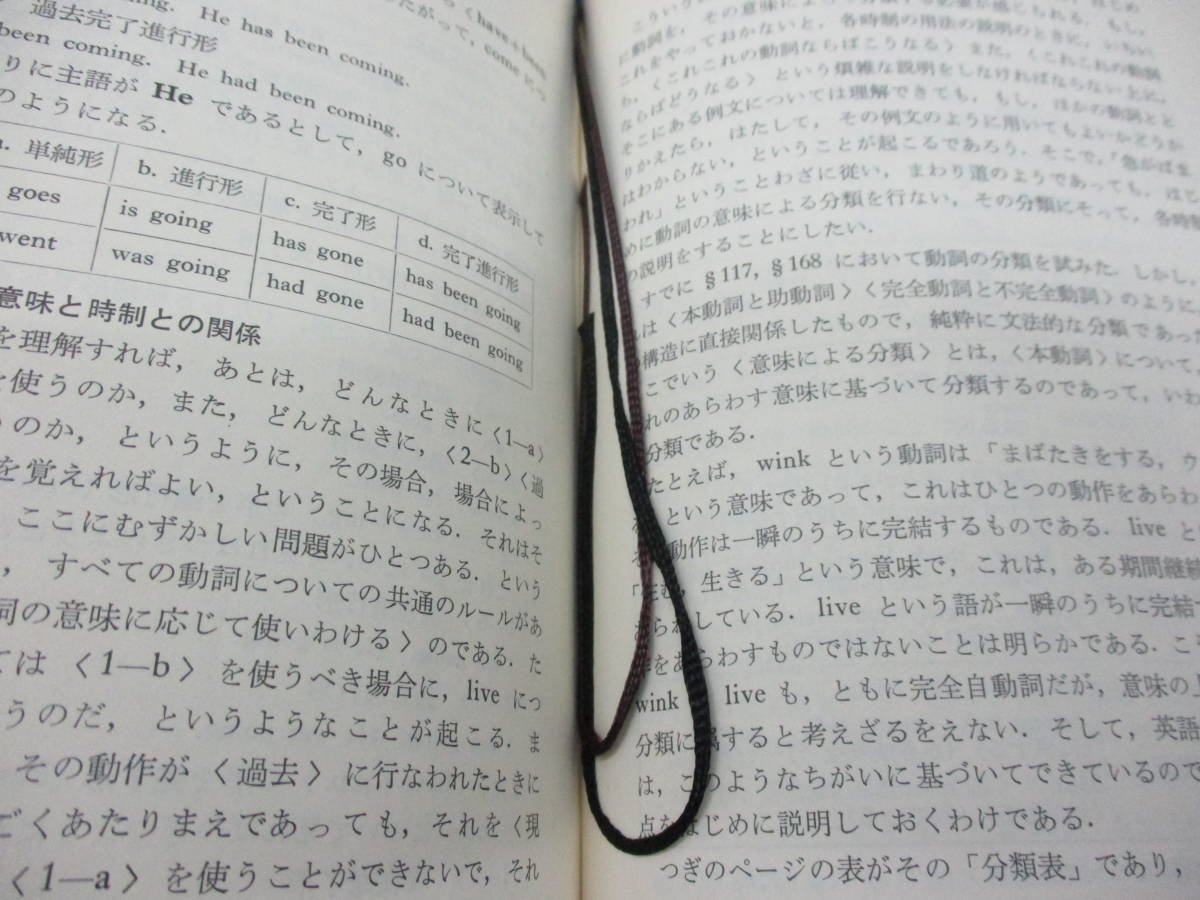 〈have+been
たがって，come につ
ming. He has been coming.
過去完了進行形
been coming. He had been coming.
りに主語が He であるとして，go について表示して
のようになる．
a. 単純形 b. 進行形 c. 完了形 d. 完了進行形
goes is going has gone has been going
went was going had gone had been going
意味と時制との関係
を理解すれば，あとは，どんなときに〈1—a〉
を使うのか，また，どんなときに，〈2—b〉〈過
うのか，というように，その場合，場合によっ
を覚えればよい，ということになる．それはそ
ここにむずかしい問題がひとつある．という
，すべての動詞についての共通のルールがあ
詞の意味に応じて使いわける〉のである．た
ては〈1—b〉を使うべき場合に，live につ
うのだ，というようなことが起こる．ま
その動作が〈過去〉に行なわれたときに
ごくあたりまえであっても，それを〈現
〈1—a〉を使うことができないで，それ
に動詞を，その意味によって分類する必要が感じられる．もし，
これをやっておかないと，各時制の用法の説明のときに，いちい
ち，〈これこれの動詞ならばこうなる〉また，〈これこれの動詞
ならばどうなる〉という煩雑な説明をしなければならない上に，
そこにある例文については理解できても，もし，ほかの動詞とと
りかえたら，はたして，その例文のように用いてもよいかどうか
はわからない，ということが起こるであろう．そこで，「急がばま
われ」ということわざに従い，まわり道のようであっても，はじ
めに動詞の意味による分類を行ない，その分類にそって，各時制
の説明をすることにしたい．
すでに §117, §168 において動詞の分類を試みた．しかし，
は〈本動詞と助動詞〉〈完全動詞と不完全動詞〉のように，
構造に直接関係したもので，純粋に文法的な分類であった
こでいう〈意味による分類〉とは，〈本動詞〉について，
れのあらわす意味に基づいて分類するのであって，いわ
分類である．
たとえば，wink という動詞は「まばたきをする，ウ
という意味であって，これはひとつの動作をあらわ
動作は一瞬のうちに完結するものである．live と
「住む，生きる」という意味で，これは，ある期間継続
らわしている．live という語が一瞬のうちに完結
作をあらわすものではないことは明らかである．こ
wink live も，ともに完全自動詞だが，意味の上
分類に属すると考えざるをえない．そして，英語
は，このようなちがいに基づいてできているので
点をはじめに説明しておくわけである．
つぎのページの表がその「分類表」であり，